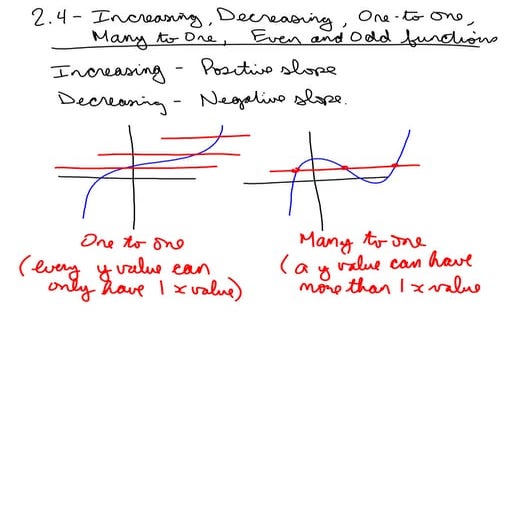 2.4 - Increasing, Decreasing, One-to one,
Many to One, Even and Odd functions
Increasing - Positive slope
Decreasing - Negative slope.
One to one
(every y value can
only have 1 x value)
Many to one
(a y value can have
more than 1 x value